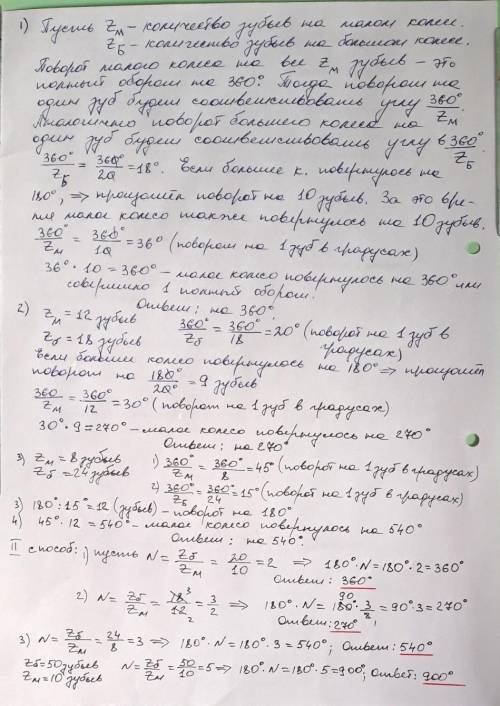 1) Пусть Zм – количество зубьев на малом колесе.
Zб – количество зубьев на большом колесе.
Поворот малого колеса на все Zм зубьев – это
полный оборот на 360°. Тогда повороту на
один зуб будет соответствовать углу 360°/Zм
Аналогично поворот большего колеса на
один зуб будет соответствовать углу в 360°/Zб
360°/Zб = 360°/20 = 18°. Если большее к. повернулось на
180°, ⇒ произошёл поворот на 10 зубьев. За это вре-
мя малое колесо также повернулось на 10 зубьев.
360°/Zм = 360°/10 = 36° (поворот на 1 зуб в градусах)
36° · 10 = 360° – малое колесо повернулось на 360° или
совершило 1 полный оборот.
Ответ: на 360°.
2) Zм = 12 зубьев
Zб = 18 зубьев 360°/Zб = 360°/18 = 20° (поворот на 1 зуб в
градусах)
Если большее колесо повернулось на 180° ⇒ произошёл
поворот на 180°/20° = 9 зубьев
360/Zм = 360°/12 = 30° (поворот на 1 зуб в градусах)
30° · 9 = 270° – малое колесо повернулось на 270°
Ответ: на 270°
3) Zм = 8 зубьев 1) 360°/Zм = 360°/8 = 45° (поворот на 1 зуб в градусах)
Zб = 24 зубьев 2) 360°/Zб = 360°/24 = 15° (поворот на 1 зуб в градусах)
3) 180° : 15° = 12 (зубьев) – поворот на 180°
4) 45° · 12 = 540° – малое колесо повернулось на 540°
Ответ: на 540°.
II способ: 1) пусть N = Zб/Zм = 20/10 = 2 ⇒ 180° · N = 180° · 2 = 360°
Ответ: 360°
2) N = Zб/Zм = 18/12 = 3/2 ⇒ 180° · N = 180° · 3/2 = 90° · 3 = 270°
Ответ: 270°
3) N = Zб/Zм = 24/8 = 3 ⇒ 180° · N = 180° · 3 = 540°; Ответ: 540°
Zб = 50 зубьев N = Zб/Zм = 50/10 = 5 ⇒ 180° · N = 180° · 5 = 900°; Ответ: 900°
Zм = 10 зубьев